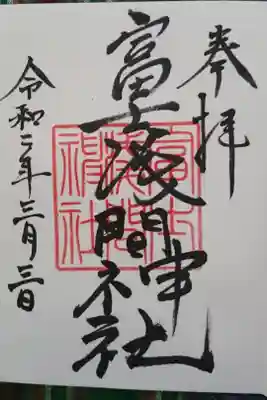 奉拝
富士浅間神社
令和二年三月三日